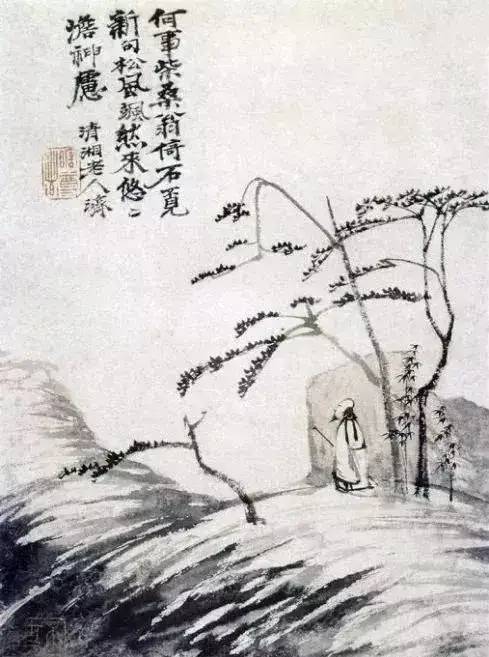 何事柴桑翁倚石覓
新句松風颯然来悠〻
澹神慮
清湘老人濟